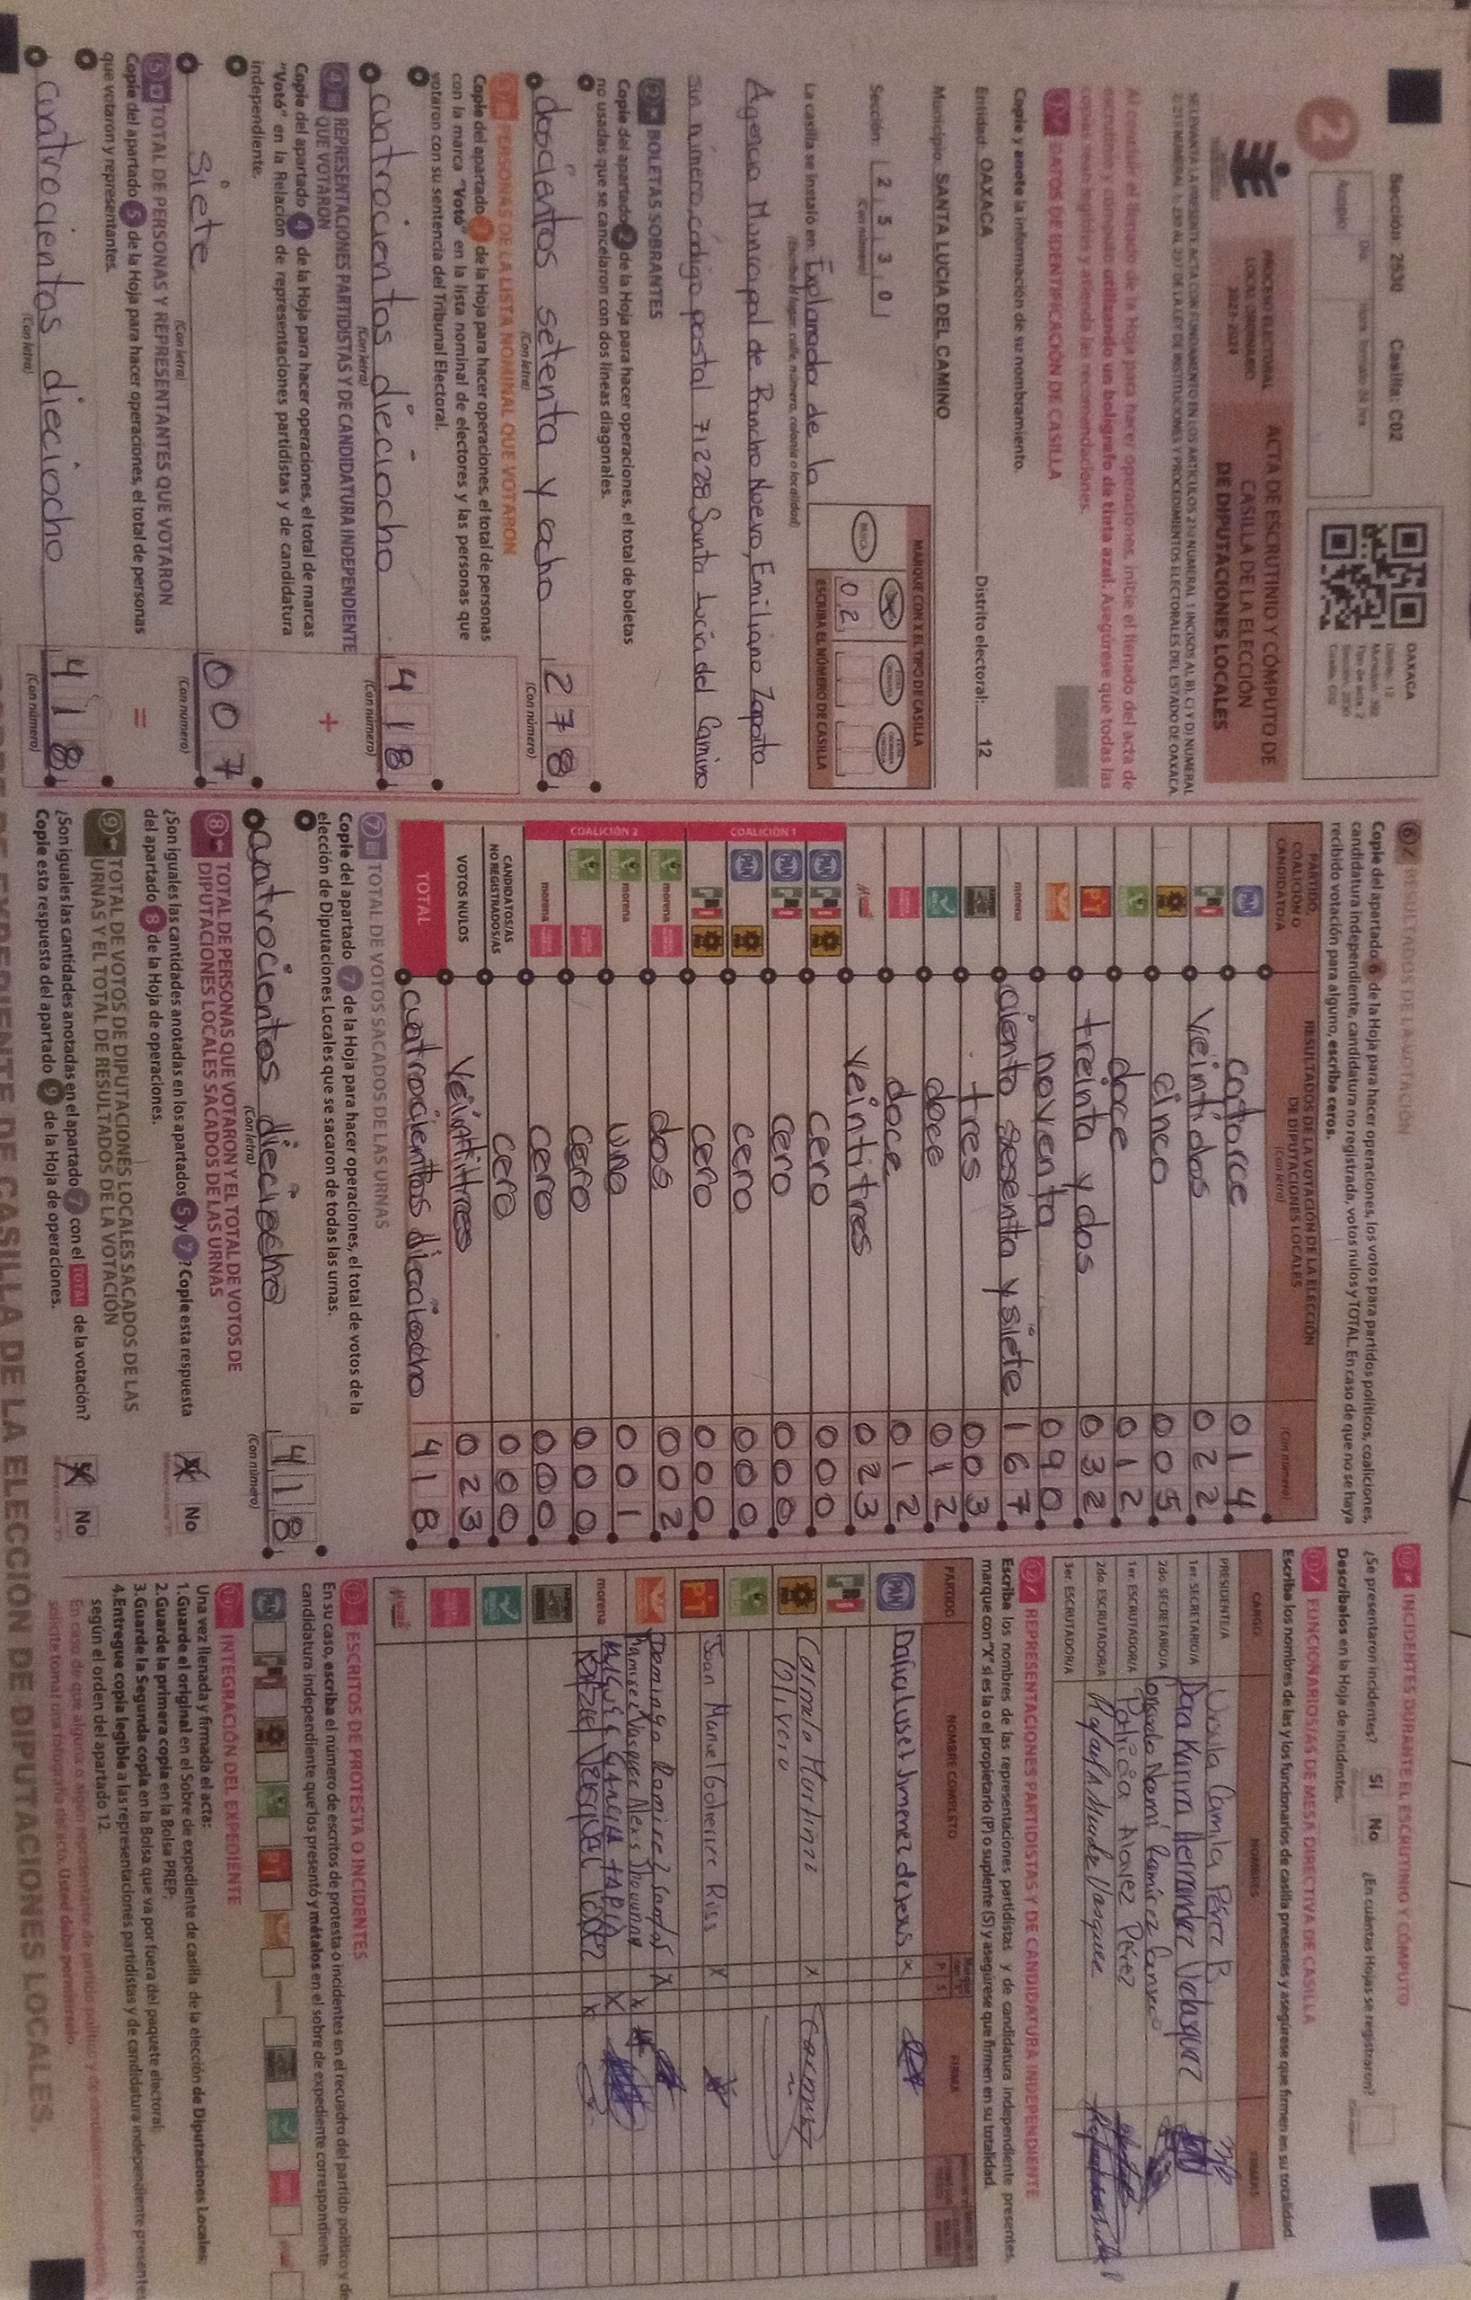 Sección: 2530 Casilla: C02
OAXACA
Distrito: 12
Tipo de acta: 2
Sección: 2530
Casilla: C02
2
Acopio
Día
PROCESO ELECTORAL
LOCAL ORDINARIO
2023-2024
ACTA DE ESCRUTINIO Y CÓMPUTO DE
CASILLA DE LA ELECCIÓN
DE DIPUTACIONES LOCALES
Al concluir el llenado de la Hoja para hacer operaciones, inicie el llenado del acta de
escrutinio y cómputo utilizando un bolígrafo de tinta azul. Asegúrese que todas las
copias sean legibles y atienda las recomendaciones.
1 DATOS DE IDENTIFICACIÓN DE CASILLA
Copie y anote la información de su nombramiento.
Entidad: OAXACA Distrito electoral: 12
Municipio: SANTA LUCIA DEL CAMINO
Sección: 2 5 3 0
(Con número)
MARQUE CON X EL TIPO DE CASILLA
ESCRIBA EL NÚMERO DE CASILLA
0 2
La casilla se instaló en: Explanada de la
(Escriba el lugar: calle, número, colonia o localidad)
Agencia Municipal de Rancho Nuevo, Emiliano Zapata
sin número, código postal 71228 Santa Lucía del Camino
2 BOLETAS SOBRANTES
Copie del apartado 2 de la Hoja para hacer operaciones, el total de boletas
no usadas que se cancelaron con dos líneas diagonales.
doscientos setenta y ocho 2 7 8
(Con letra) (Con número)
3 PERSONAS DE LA LISTA NOMINAL QUE VOTARON
Copie del apartado 3 de la Hoja para hacer operaciones, el total de personas
con la marca "Votó" en la lista nominal de electores y las personas que
votaron con su sentencia del Tribunal Electoral.
cuatrocientos dieciocho 4 1 8
(Con letra) (Con número)
+
4 REPRESENTACIONES PARTIDISTAS Y DE CANDIDATURA INDEPENDIENTE
QUE VOTARON
Copie del apartado 4 de la Hoja para hacer operaciones, el total de marcas
"Votó" en la Relación de representaciones partidistas y de candidatura
independiente.
Siete 0 0 7
(Con letra) (Con número)
=
5 TOTAL DE PERSONAS Y REPRESENTANTES QUE VOTARON
Copie del apartado 5 de la Hoja para hacer operaciones, el total de personas
que votaron y representantes.
cuatrocientos dieciocho 4 1 8
(Con letra) (Con número)
6 RESULTADOS DE LA VOTACIÓN
Copie del apartado 6 de la Hoja para hacer operaciones, los votos para partidos políticos, coaliciones,
candidatura independiente, candidatura no registrada, votos nulos y TOTAL. En caso de que no se haya
recibido votación para alguno, escriba ceros.
PARTIDO,
COALICIÓN O
CANDIDATO/A
RESULTADOS DE LA VOTACIÓN DE LA ELECCIÓN
DE DIPUTACIONES LOCALES
(Con letra) (Con número)
PAN catorce 0 1 4
PRI Veintidos 0 2 2
cinco 0 0 5
doce 0 1 2
PT treinta y dos 0 3 2
noventa 0 9 0
morena ciento sesenta y siete 1 6 7
tres 0 0 3
doce 0 1 2
doce 0 1 2
veintitres 0 2 3
COALICIÓN 1
PAN PRI cero 0 0 0
PAN PRI cero 0 0 0
PAN cero 0 0 0
PRI cero 0 0 0
COALICIÓN 2
morena dos 0 0 2
morena uno 0 0 1
cero 0 0 0
morena cero 0 0 0
CANDIDATOS/AS
NO REGISTRADOS/AS cero 0 0 0
VOTOS NULOS Veintitres 0 2 3
TOTAL cuatrocientos dieciocho 4 1 8
7 TOTAL DE VOTOS SACADOS DE LAS URNAS
Copie del apartado 7 de la Hoja para hacer operaciones, el total de votos de la
elección de Diputaciones Locales que se sacaron de todas las urnas.
cuatrocientos dieciocho 4 1 8
(Con letra) (Con número)
8 TOTAL DE PERSONAS QUE VOTARON Y EL TOTAL DE VOTOS DE
DIPUTACIONES LOCALES SACADOS DE LAS URNAS
¿Son iguales las cantidades anotadas en los apartados 5 y 7? Copie esta respuesta
del apartado 8 de la Hoja de operaciones.
No
9 TOTAL DE VOTOS DE DIPUTACIONES LOCALES SACADOS DE LAS
URNAS Y EL TOTAL DE RESULTADOS DE LA VOTACIÓN
¿Son iguales las cantidades anotadas en el apartado 7 con el TOTAL de la votación?
Copie esta respuesta del apartado 9 de la Hoja de operaciones.
No
10 INCIDENTES DURANTE EL ESCRUTINIO Y CÓMPUTO
¿Se presentaron incidentes? Sí No ¿En cuántas Hojas se registraron?
Descríbalos en la Hoja de incidentes.
11 FUNCIONARIOS/AS DE MESA DIRECTIVA DE CASILLA
Escriba los nombres de las y los funcionarios de casilla presentes y asegúrese que firmen en su totalidad.
CARGO NOMBRES FIRMAS
PRESIDENTE/A Ursula Camila Pérez R
1er. SECRETARIO/A Dara Karina Hernandez Velasquez
2do. SECRETARIO/A Consuelo Noemí Ramírez
1er. ESCRUTADOR/A Patricia Alavez Pérez
2do. ESCRUTADOR/A
3er. ESCRUTADOR/A
12 REPRESENTACIONES PARTIDISTAS Y DE CANDIDATURA INDEPENDIENTE
Escriba los nombres de las representaciones partidistas y de candidatura independiente presentes,
marque con "X" si es la o el propietario (P) o suplente (S) y asegúrese que firmen en su totalidad.
PARTIDO NOMBRE COMPLETO P S FIRMA
PAN Jimenez de Jesus x
PRI
Carmela Martinez x
Olivera
PT Joan Manuel Gutierrez Rios X
Domingo Ramirez Santos X
x
morena GARCIA TAPIA X
x
13 ESCRITOS DE PROTESTA O INCIDENTES
En su caso, escriba el número de escritos de protesta o incidentes en el recuadro del partido político y de
candidatura independiente que los presentó y métalos en el sobre de expediente correspondiente.
PAN PRI PT morena
14 INTEGRACIÓN DEL EXPEDIENTE
Una vez llenada y firmada el acta:
1.Guarde el original en el Sobre de expediente de casilla de la elección de Diputaciones Locales;
2.Guarde la primera copia en la Bolsa PREP;
3.Guarde la Segunda copia en la Bolsa que va por fuera del paquete electoral;
4.Entregue copia legible a las representaciones partidistas y de candidatura independiente presentes
según el orden del apartado 12.
En caso de que alguna o algún representante de partido político y de candidatura independiente
solicite tomar una fotografía del acta. Usted debe permitírselo
DE CASILLA DE LA ELECCIÓN DE DIPUTACIONES LOCALES.